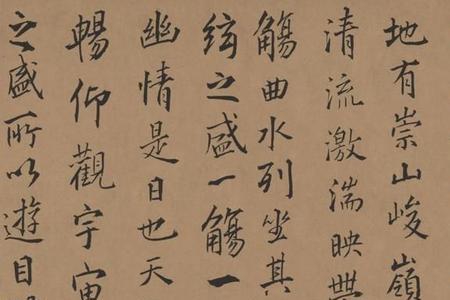 地有崇山峻嶺
清流激湍映帶
觴曲水列坐其
絃之盛一觴一
幽情是日也天
暢仰觀宇宙
之盛所以遊目